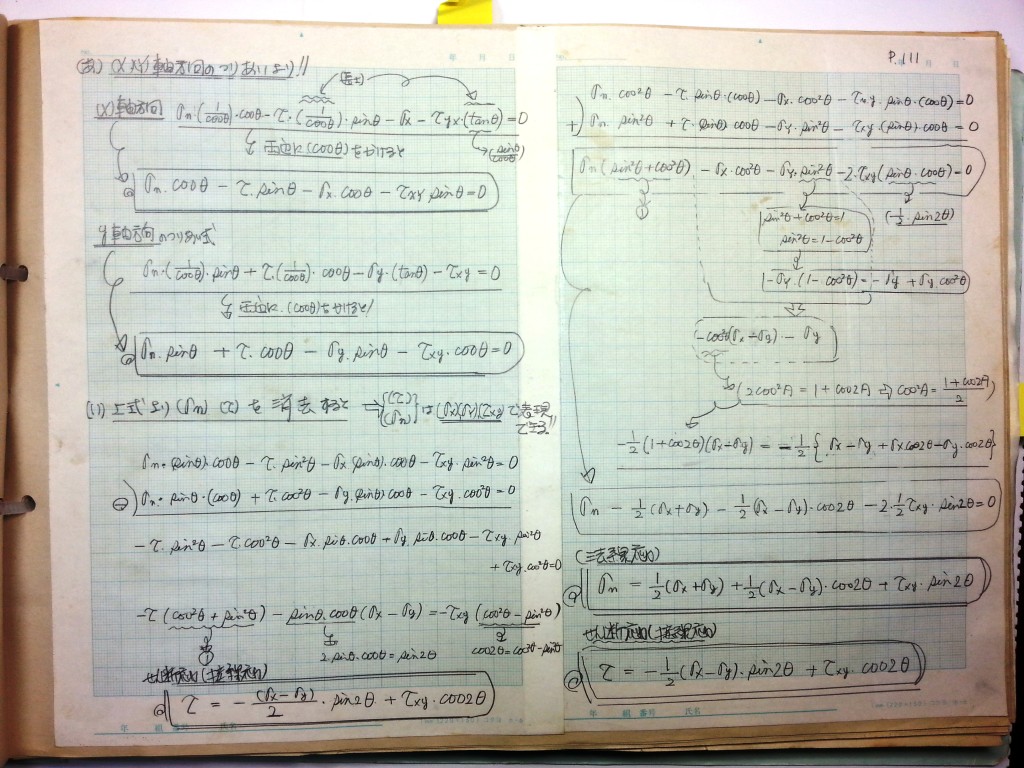 (X)(Y)軸方向のつりあいより!!
(X)軸方向 σn・(1/cosθ)・cosθ − τ・(1/cosθ)・sinθ − σx − τyx・(tanθ) = 0
(sinθ/cosθ)
両辺に(cosθ)をかけると
σn・cosθ − τ・sinθ − σx・cosθ − τxy・sinθ = 0
y軸方向のつりあい式
σn・(1/cosθ)・sinθ + τ・(1/cosθ)・cosθ − σy・(tanθ) − τxy = 0
両辺に・(cosθ)をかけると
σn・sinθ + τ・cosθ − σy・sinθ − τxy・cosθ = 0
(1) 上式より (σn) (τ) を消去すると ⇒ {(τ) (σn)} は (σx)(σy)(τxy) で表現
できる!!
σn・(sinθ)・cosθ − τ・sin²θ − σx(sinθ)・cosθ − τxy・sin²θ = 0
⊖) σn・sinθ・(cosθ) + τ・cos²θ − σy・(sinθ)・cosθ − τxy・cos²θ = 0
−τ・sin²θ − τ・cos²θ − σx・sinθ・cosθ + σy・sinθ・cosθ − τxy・sin²θ
+ τxy・cos²θ = 0
−τ(cos²θ + sin²θ) − sinθ・cosθ(σx − σy) = −τxy(cos²θ − sin²θ)
①
2・sinθ・cosθ = sin2θ
cos2θ = cos²θ − sin²θ
せん断応力(接線応力)
τ = −(σx − σy)/2・sin2θ + τxy・cos2θ
年 組 番号 氏名
年 月 日
P.111
σn・cos²θ − τ・sinθ・(cosθ) − σx・cos²θ − τxy・sinθ・(cosθ) = 0
+) σn・sin²θ + τ・(sinθ)・cosθ − σy・sin²θ − τxy・(sinθ)・cosθ = 0
σn(sin²θ + cos²θ) − σx・cos²θ − σy・sin²θ − 2・τxy(sinθ・cosθ) = 0
①
sin²θ + cos²θ = 1
(−1/2・sin2θ)
sin²θ = 1 − cos²θ
1−σy・(1 − cos²θ) = −σy + σy・cos²θ
−cos²θ(σx − σy) − σy
(2cos²A = 1 + cos2A ⇒ cos²A = (1 + cos2A)/2)
−1/2(1 + cos2θ)(σx − σy) = −1/2{σx − σy + σx cos2θ − σy・cos2θ}
σn − 1/2(σx + σy) − 1/2(σx − σy)・cos2θ − 2・1/2 τxy・sin2θ = 0
(法線応力)
σn = 1/2(σx + σy) + 1/2(σx − σy)・cos2θ + τxy・sin2θ
せん断応力(接線応力)
τ = −1/2(σx − σy)・sin2θ + τxy・cos2θ
年 組 番号 氏名